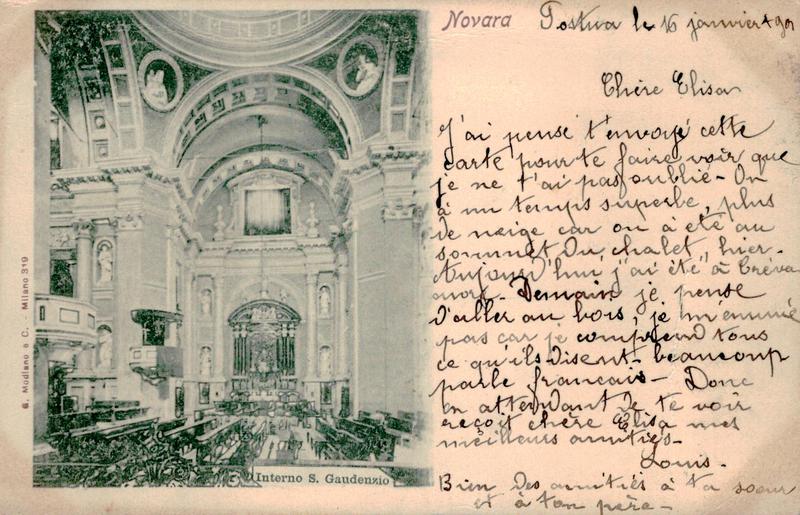 Novara
Postua le 16 janvier 1901
Chère Elisa
J'ai pensé t'envoyé cette
carte pour te faire voir que
je ne t'ai pas oublié - On
à un temps superbe, plus
de neige car on à eté au
sommet du "chalet" hier -
Aujourd'hui j'ai été à Creva
cuore - Demain je pense
d'aller au bois, je m'ennuie
pas car je comprend tous
ce qu'ils disent - beaucoup
parle francais - Donc
en attendant de te voir
reçoit chère Elisa mes
meilleurs amitiés -
Louis -
Bien des amitiés à ta soeur
et à ton père -
Interno S. Gaudenzio
G. Modiano e C. - Milano 319